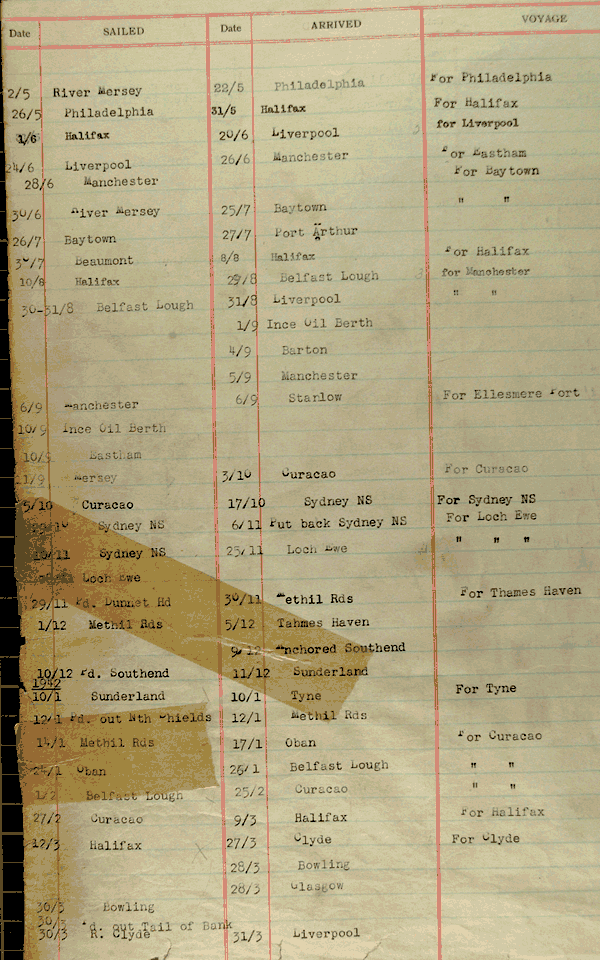 Date SAILED Date ARRIVED VOYAGE
2/5 River Mersey 22/5 Philadelphia For Philadelphia
26/5 Philadelphia 31/5 Halifax For Halifax
1/6 Halifax 20/6 Liverpool for Liverpool
24/6 Liverpool 26/6 Manchester For Eastham
28/6 Manchester For Baytown
30/6 River Mersey 25/7 Baytown " "
26/7 Baytown 27/7 Port Arthur
30/7 Beaumont 8/8 Halifax For Halifax
10/8 Halifax 29/8 Belfast Lough for Manchester
30-31/8 Belfast Lough 31/8 Liverpool " "
1/9 Ince Oil Berth
4/9 Barton
5/9 Manchester
6/9 Manchester 6/9 Stanlow For Ellesmere Port
10/9 Ince Oil Berth
10/9 Eastham
11/9 Mersey 3/10 Curacao For Curacao
5/10 Curacao 17/10 Sydney NS For Sydney NS
Sydney NS 6/11 Put back Sydney NS For Loch Ewe
10/11 Sydney NS 25/11 Loch Ewe " " "
Loch Ewe
29/11 Pd. Dunnet Hd 30/11 Methil Rds For Thames Haven
1/12 Methil Rds 5/12 Tahmes Haven
9/12 Anchored Southend
10/12 Pd. Southend 11/12 Sunderland
1942
10/1 Sunderland 10/1 Tyne For Tyne
12/1 Pd. out Nth Shields 12/1 Methil Rds
14/1 Methil Rds 17/1 Oban For Curacao
24/1 Oban 26/1 Belfast Lough " "
1/2 Belfast Lough 25/2 Curacao " "
27/2 Curacao 9/3 Halifax For Halifax
12/3 Halifax 27/3 Clyde For Clyde
28/3 Bowling
28/3 Glasgow
30/3 Bowling
30/3 Pd. out Tail of Bank
30/3 R. Clyde 31/3 Liverpool